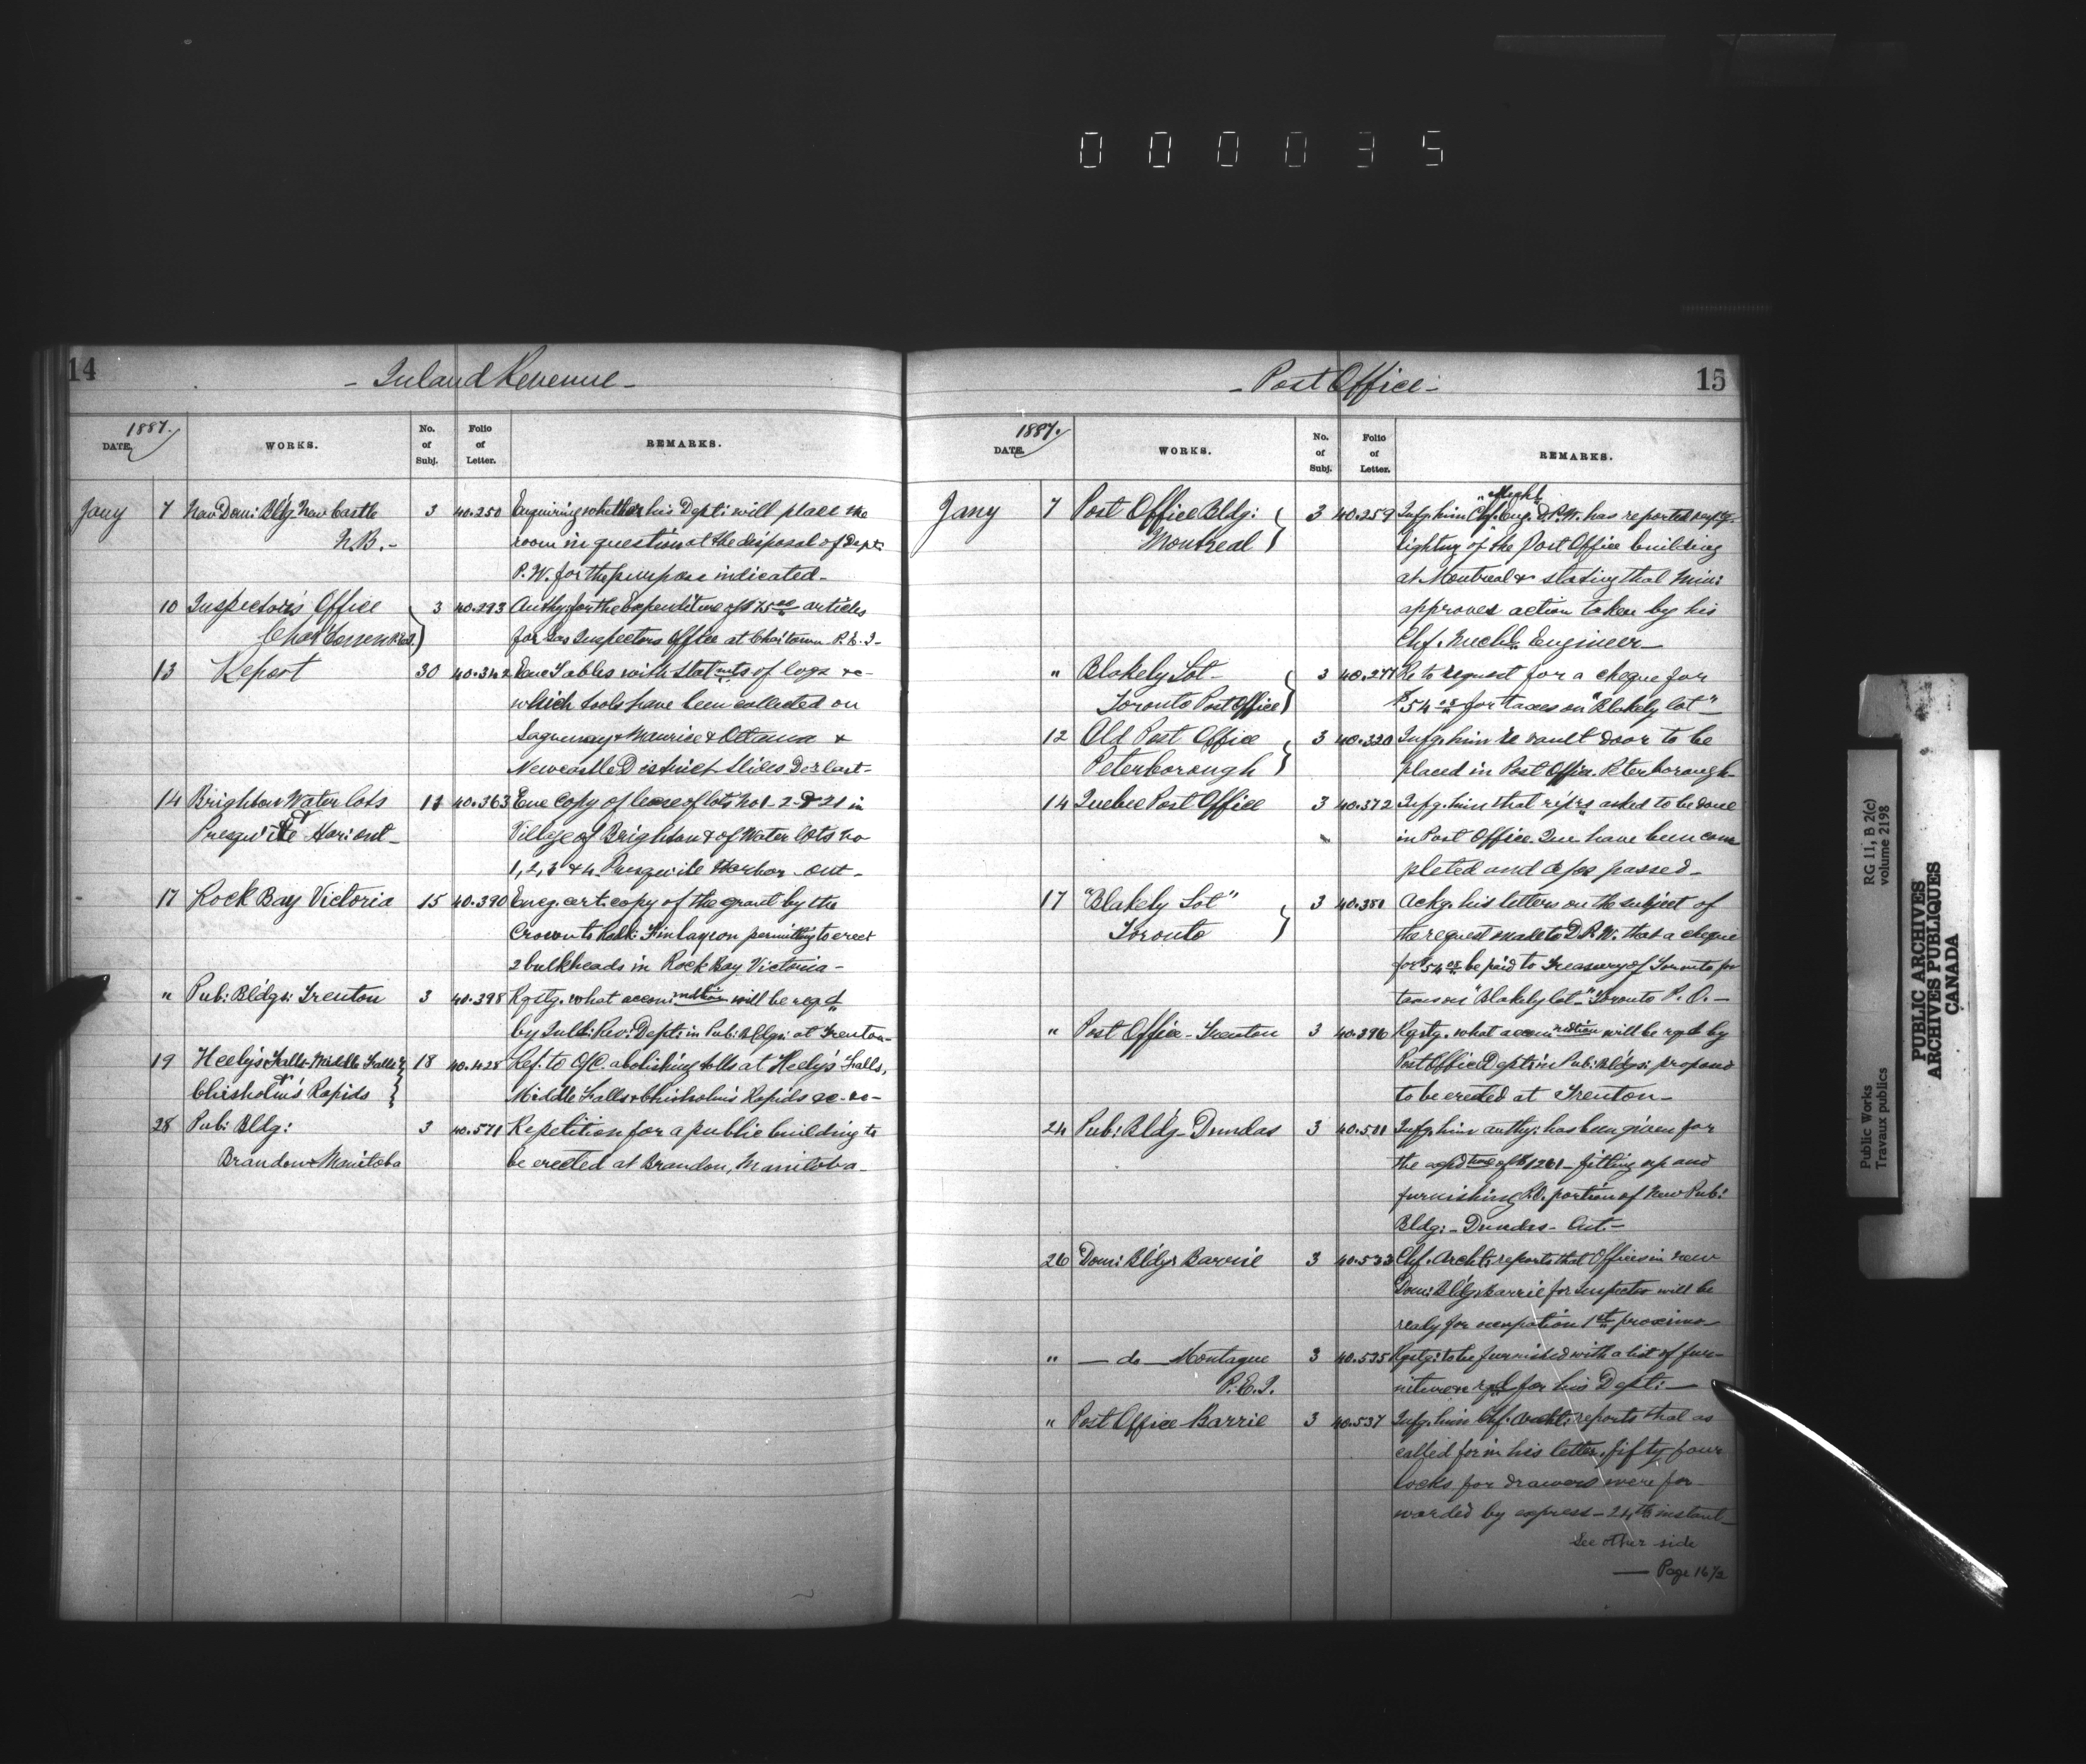 000035
14
- Inland Revenue -
1887.
DATE. WORKS. No. of Subj. Folio of Letter. REMARKS.
Jany 7 New Dom: Bldg. New Castle 3 40.250 Enquiring whether his Dept: will place the
N.B. - room in question at the disposal of Dept:
P.W. for the purpose indicated -
10 Inspector's Office 3 40.293 Authy: for the Expenditure of $75.00 articles
for Gas Inspectors Office at Cha'town P.E.I -
13 Report 30 40.342 Enc Tables with statmts of logs &c -
which tools have been collected on
Saguenay & Maurice & Ottawa &
Newcastle District Slides Dec last -
14 Brighton Water lots 11 40.363 Enc Copy of lease of lots No 1-2-& 21 in
& Presqu'ile Har: ont - Village of Brighton & of Water lots No
1, 2, 3 & 4. Presqu'ile Harbor - Ont -
17 Rock Bay Victoria 15 40.390 Encg. cert: copy of the grant by the
Crown to Rodk: Finlayson permitting to erect
2 bulkheads in Rock Bay Victoria -
" Pub: Bldgs: Trenton 3 40.398 Rqstg. what accommdtion will be reqd
by Inld: Rev: Dept: in Pub: Bldgs: at Trenton -
19 Heely's Falls - Middle Falls 18 40.428 Ref. to O/C. abolishing tolls at Heely's Falls,
& Chisholm's Rapids Middle Falls & Chisholm's Rapids &c - &c -
28 Pub: Bldg: 3 40.571 Re petition for a public building to
Brandon Manitoba be erected at Brandon, Manitoba -
- Post Office - 15
1887.
DATE. WORKS. No. of Subj. Folio of Letter. REMARKS.
Jany 7 Post Office Bldg: 3 40.259 Infg. him Chf. "Mechl" Eng. D.P.W. has reported
Montreal lighting of the Post Office building
at Montreal & stating that Min:
approves action taken by his
Chf. Mechl. Engineer -
" Blakely Lot - 3 40.271 Re to request for a cheque for
Toronto Post Office for taxes on "Blakely lot" -
12 Old Post Office 3 40.320 Infg. him re vault door to be
Peterborough placed in Post Office Peterborough -
14 Quebec Post Office 3 40.372 Infg. him that rep'rs asked to be done
in Post Office Que have been com
pleted and passed -
17 "Blakely Lot" 3 40.381 Ackg. his letters on the subject of
Toronto the request made to D.P.W. that a cheque
be paid to Treasury of Toronto for
taxes on "Blakely lot -" Toronto P.O. -
" Post Office - Trenton 3 40.396 Rqstg. what accommdtion will be rqd by
Post Office Dept: in Pub: Bldgs: proposed
to be erected at Trenton -
24 Pub: Bldg - Dundas 3 40.501 Infg. him authy: has been given for
the expdture of $1261 - fitting up and
furnishing P.O. portion of New Pub:
Bldg: - Dundas - Ont -
26 Dom: Bldgs Barrie 3 40.533 Chf. Archt: reports that Offices in new
Dom: Bldgs Barrie for Inspector will be
ready for occupation 1st proximo
" - do - Montague 3 40.535 Rqstg: to be furnished with a list of fur-
P.E.I. niture &c rqd for his Dept: -
" Post Office Barrie 3 40.537 Infg. him Chf. Archt: reports that as
called for in his letter, fifty four
locks for drawers were for
warded by express - 24th instant -
See other side
- Page 16 1/2
RG 11, B 2(c)
volume 2198
Public Works
Travaux publics
PUBLIC ARCHIVES
ARCHIVES PUBLIQUES
CANADA